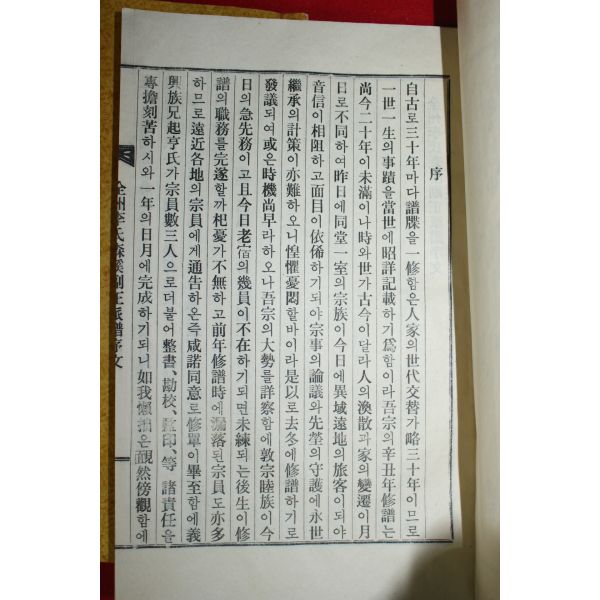 序
自古로三十年마다譜牒을一修함은人家의世代交替가略三十年이므로
一世一生의事蹟을當世에昭詳記載하기爲함이라吾宗의辛丑年修譜는
尙今二十年이未滿이나時와世가古今이달라人의渙散과家의變遷이月
日로不同하여昨日에同堂一室의宗族이今日에異域遠地의旅客이되야
音信이相阻하고面目이依俙하기되야宗事의論議와先塋의守護에永世
繼承의計策이亦難하오니惶懼憂悶할바이라是以로去冬에修譜하기로
發議되여或은時機尙早라하오나吾宗의大勢를詳察함에敦宗睦族이今
日의急先務이고且今日老宿의幾員이不在하기되면未練되는後生이修
譜의職務를完遂할까杞憂가不無하고前年修譜時에漏落된宗員도亦多
하므로遠近各地의宗員에게通告하온즉咸諾同意로修單이畢至함에義
興族兄起亨氏가宗員數三人으로더불어整書、勘校、監印、等諸責任을
專擔刻苦하시와一年의日月에完成하기되니如我懶拙은靦然傍觀함에
全州李氏森溪副正派譜序文